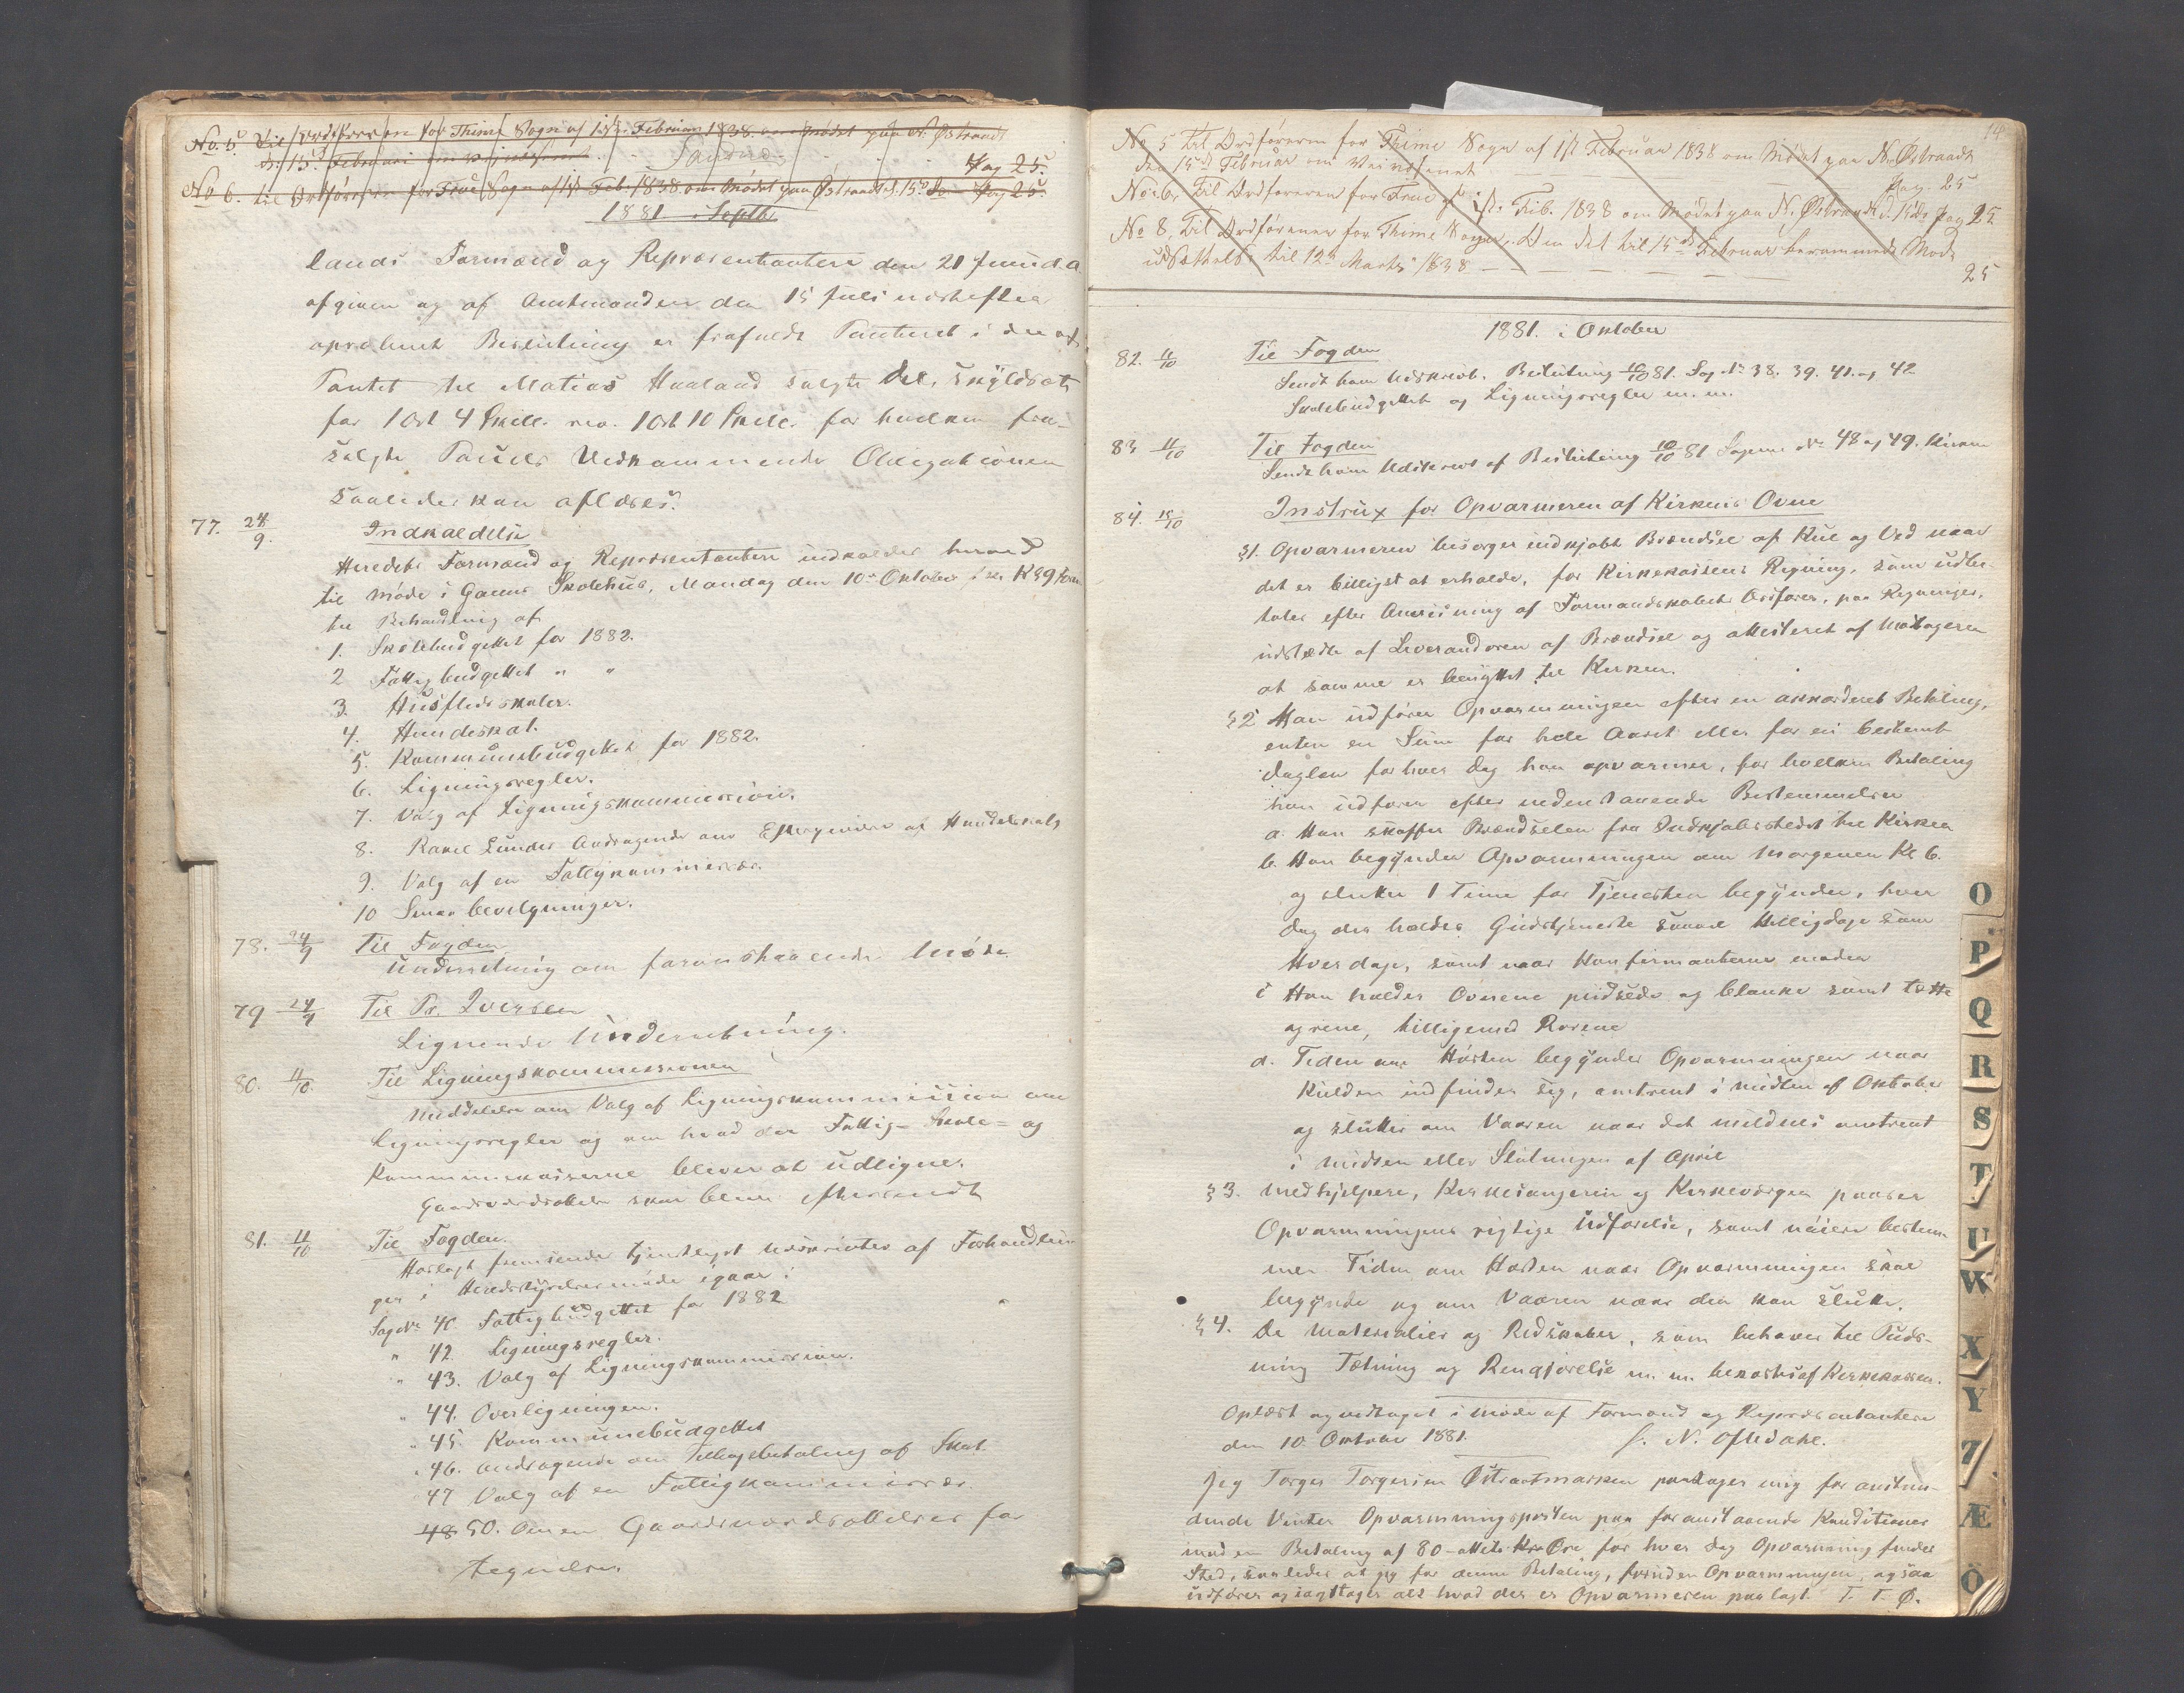 No. 5. Til Ordføreren for Thime Sogn af 1ste Februar 1838 om Mødet paa N. Østraadt
d. 15 Februari
Pag 25.
No 6. til Ordføreren for Frue Sogn af 1ste Feb. 1838 om Mødet paa Østraadt d. 15de do Pag 25.
1881 i Septbr
lands Formænd og Repræsentantere den 21 Juni d.a.
afgiven og af Amtmanden den 15 Juli næstefter
aproberet Beslutning er frafaldt Panteret i den af
Pantet til Matias Haaland solgte Del, Skyldsat
for 1 Ort 4 Skill. rev. 1 Ort 10 Skill. for hvilken fra-
solgte Parcel Vedkommende Obligationen
saaledes kan aflæses.
77. 24/9. Indkaldelse
Heredets Formænd og Repræsentantere indkaldes herved
til Møde i Ganns Skolehus, Mandag den 10de Oktober Kl 9 Form
til Behandling af
1. Skolebudgettet for 1882.
2 Fattigbudgettet " "
3. Husflidsskoler.
4. Hundeskat.
5. Kommunebudgettet for 1882.
6. Ligningsregler.
7. Valg af Ligningskommission.
8. Rakel Lundes Andragende om Eftergivelse af Hundeskat
9. Valg af en Fattigkommissær.
10 Smaa bevilgninger.
78. 24/9 Til Fogden
Underretning om foranstaaende Møde
79 24/9 Til Pr. Iversen
Lignende Underretning.
80. 11/10. Til Ligningskommissionen
Meddelelse om Valg af Ligningskommission om
Ligningsregler og om hvad der Fattig- Skole- og
Kommunekasserne bliver at udligne.
Gaardsværdsættelse skal blive eftersendt
81. 11/10 Til Fogden.
Hoslagt fremsendes tjenstligst Udskrifter af Forhandlin-
ger i Heredsstyrelsesmøde igaar:
Sag No 40. Fattigbudgettet for 1882
" 42. Ligningsregler.
" 43. Valg af Ligningskommission.
" 44. Overligningen.
" 45. Kommunebudgettet
" 46. Andragende om Tilbagebetaling af Skat.
47 Valg af en Fattigkommissær.
48 50. Om en Gaardsværdsættelse for
Aegidius.
14
No 5 Til Ordføreren for Thime Sogn af 1ste Februar 1838 om Mødet paa N. Østraadt
den 15de Februar om Veivæsenet Pag. 25
No. 6. Til Ordføreren for Frue 1ste Feb. 1838 om Mødet paa N. Østraadt d. 15de Pag 25
No 8, Til Ordføreren for Thime Sogn. Om det til 15de Februar berammede Møde
udsættelse til 12te Marts 1838 25
1881. i Oktober
82. 11/10 Til Fogden
Sendt ham Udskrivt. Beslutning 10/10 81. Sag No 38. 39. 41. og 42
Skolebudgettet og Ligningsregler m. m.
83 11/10 Til Fogden
Sendt ham Udskrivt af Beslutning 10/10 81 Sagerne No 48 og 49. Kirken
84. 15/10 Instrux for Opvarmeren af Kirkens Ovne
§1. Opvarmeren besørger indkjøbt Brændsel af Kul og Ved naar
det er billigst at erholde, for Kirkekassens Regning, som udbe-
tales efter Anvisning af Formandskabets Ordfører, paa Regninger,
udstædte af Leverandøren af Brændsel og attesteret af Modtageren
at samme er benyttet til Kirken.
§2 Han udfører Opvarmningen efter en akkorderet Betaling,
enten en Sum for hele Aaret eller for en bestemt
Dagløn for hver Dag han opvarmer, for hvilken Betaling
han udfører efter nedenstaaende Bestemmelser
a. Han skaffer Brændselen fra Indkjøbsstedet til Kirken
b. Han begynder Opvarmningen om Morgenen Kl 6.
og slutter 1 Time før Tjenesten begynder, hver
Dag der holdes Gudstjeneste saavel Helligdage som
Hverdage, samt naar Konfirmanterne møder
c Han holder Ovnene pudsede og blanke samt tætte
og rene, tilligemed Rørene
d. Tiden om Høsten begynder Opvarmningen naar
Kulden indfinder sig, omtrent i Midten af Oktober
og slutter om Vaaren naar det mildnes omtrent
i Midten eller Slutningen af April
§3. Medhjelpere, Kirkesangeren og Kirkeværgen paaser
Opvarmningens rigtige Udførelse, samt nøiere bestem-
mer Tiden om Høsten naar Opvarmningen skal
begynde og om Vaaren naar den kan slutte.
§4. De Materialier og Redskaber, som behøves til Puds-
ning Tætning og Rengjørelse m. m. bekostes af Kirkekassen.
Oplæst og vedtaget i Møde af Formænd og Repræsentantere
den 10 Oktober 1881. S. N. Oftedahl.
Jeg Torger Torgersen Østraatmarken paatager mig for anstun-
dende Vinter Opvarmningsposten paa foranstaaende Konditioner
mod en Betaling af 80 - otteti Kr Øre for hver Dag Opvarmning finder
Sted, saaledes at jeg for denne Betaling, foruden Opvarmningen, ogsaa
udfører og iagttager alt hvad der er Opvarmeren paalagt. T. T. Ø.
O
P
Q
R
S
T
U
W
X
Y
Z
Æ
Ö